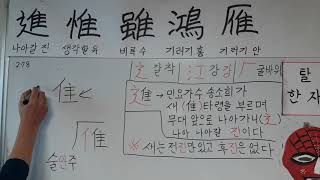 進 惟 雖 鴻 雁
나아갈 진 생각할 유 비록 수 기러기 홍 기러기 안
298
辶 착 江 강 厂 굴바위
탈
한 자
隹
辶隹 → 민요가수 송소희가
새(隹)타령을 부르며
무대 앞으로 나아가니(辶)
나아 나아갈 진이다
※ 새는 전진만있고 후진은 없다
술안주